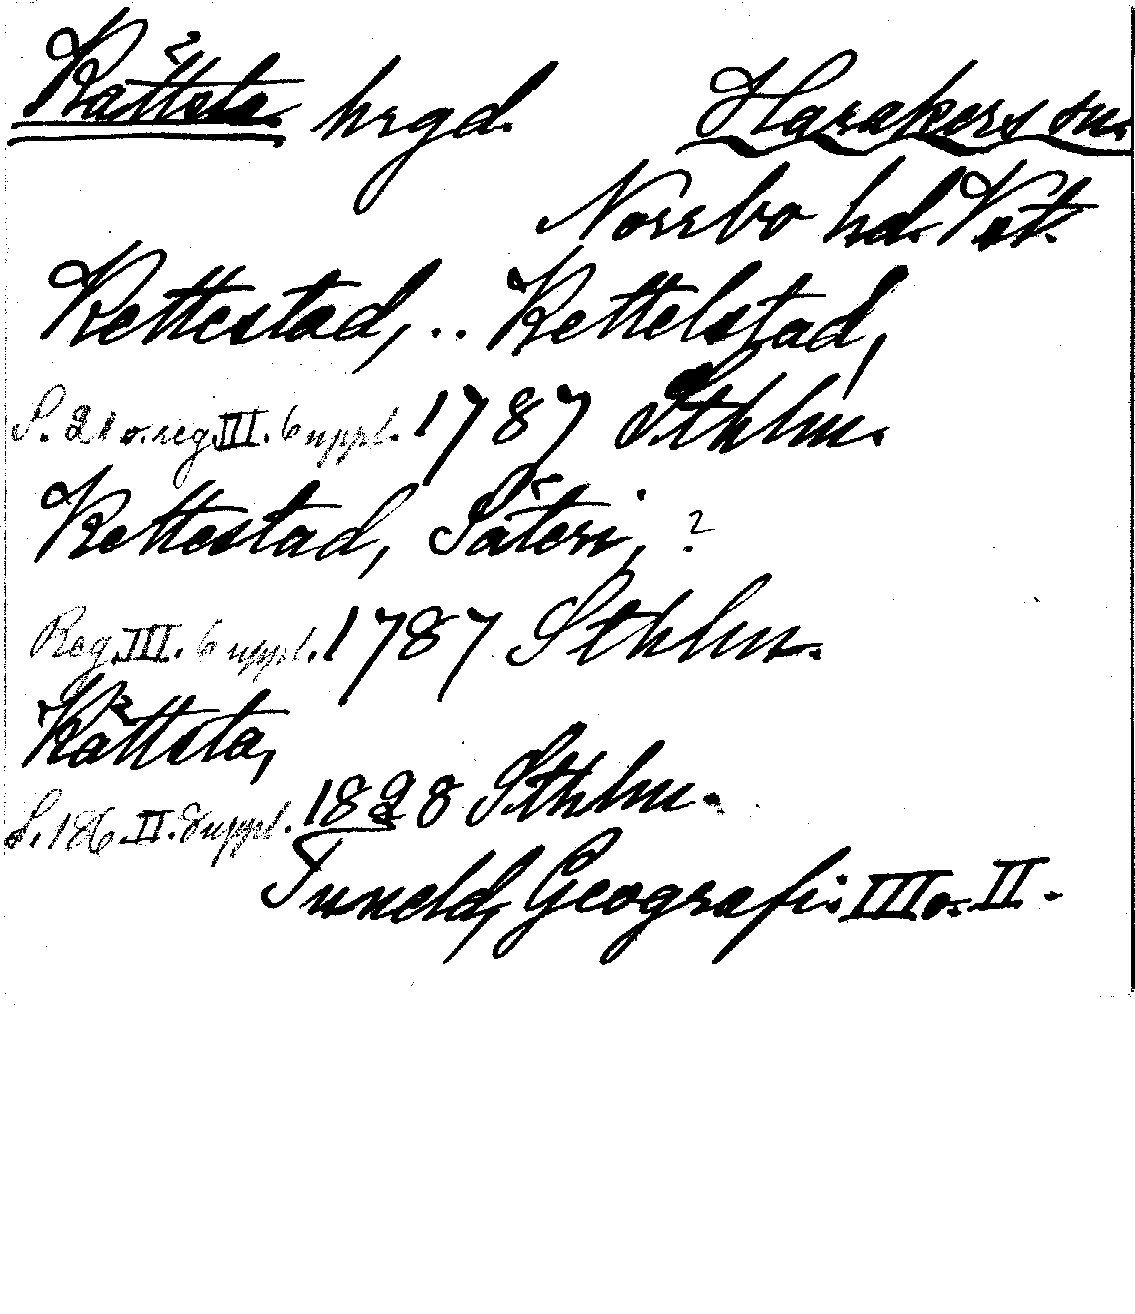 Kättsta hrgd. Harakers sn.
Norrbo hd. Vst.
Kettestad, .. Kettelstad,
S. 21 o. reg. III. 6 uppl. 1787 Sthlm.
Kettestad, Säteri, ?
Reg. III. 6 uppl. 1787 Sthlm.
Kättsta,
S. 186. II. 8 uppl. 1828 Sthlm.
Tuneld, Geografi. III o. II.